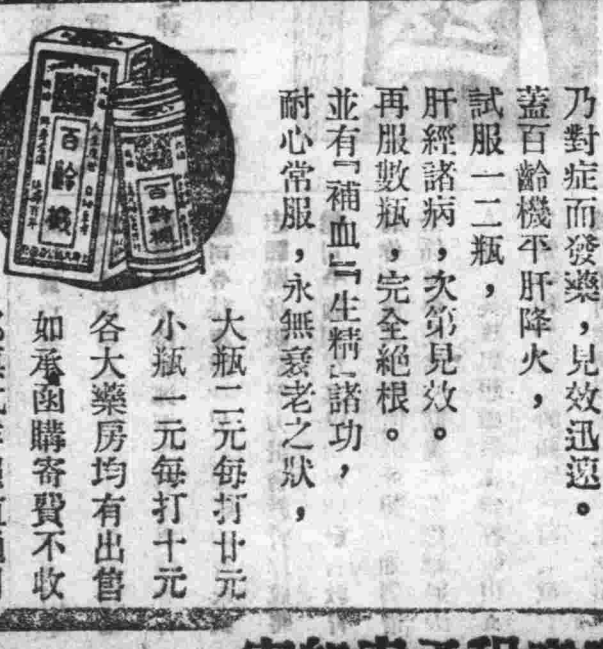 乃對症而發藥，見效迅速。
蓋百齡機平肝降火，
試服一二瓶，
肝經諸病，次第見效。
再服數瓶，完全絕根。
並有『補血』『生精』諸功，
耐心常服，永無衰老之狀，
大瓶二元每打廿元
小瓶一元每打十元
各大藥房均有出售
如承函購寄費不收
百齡機
百齡機